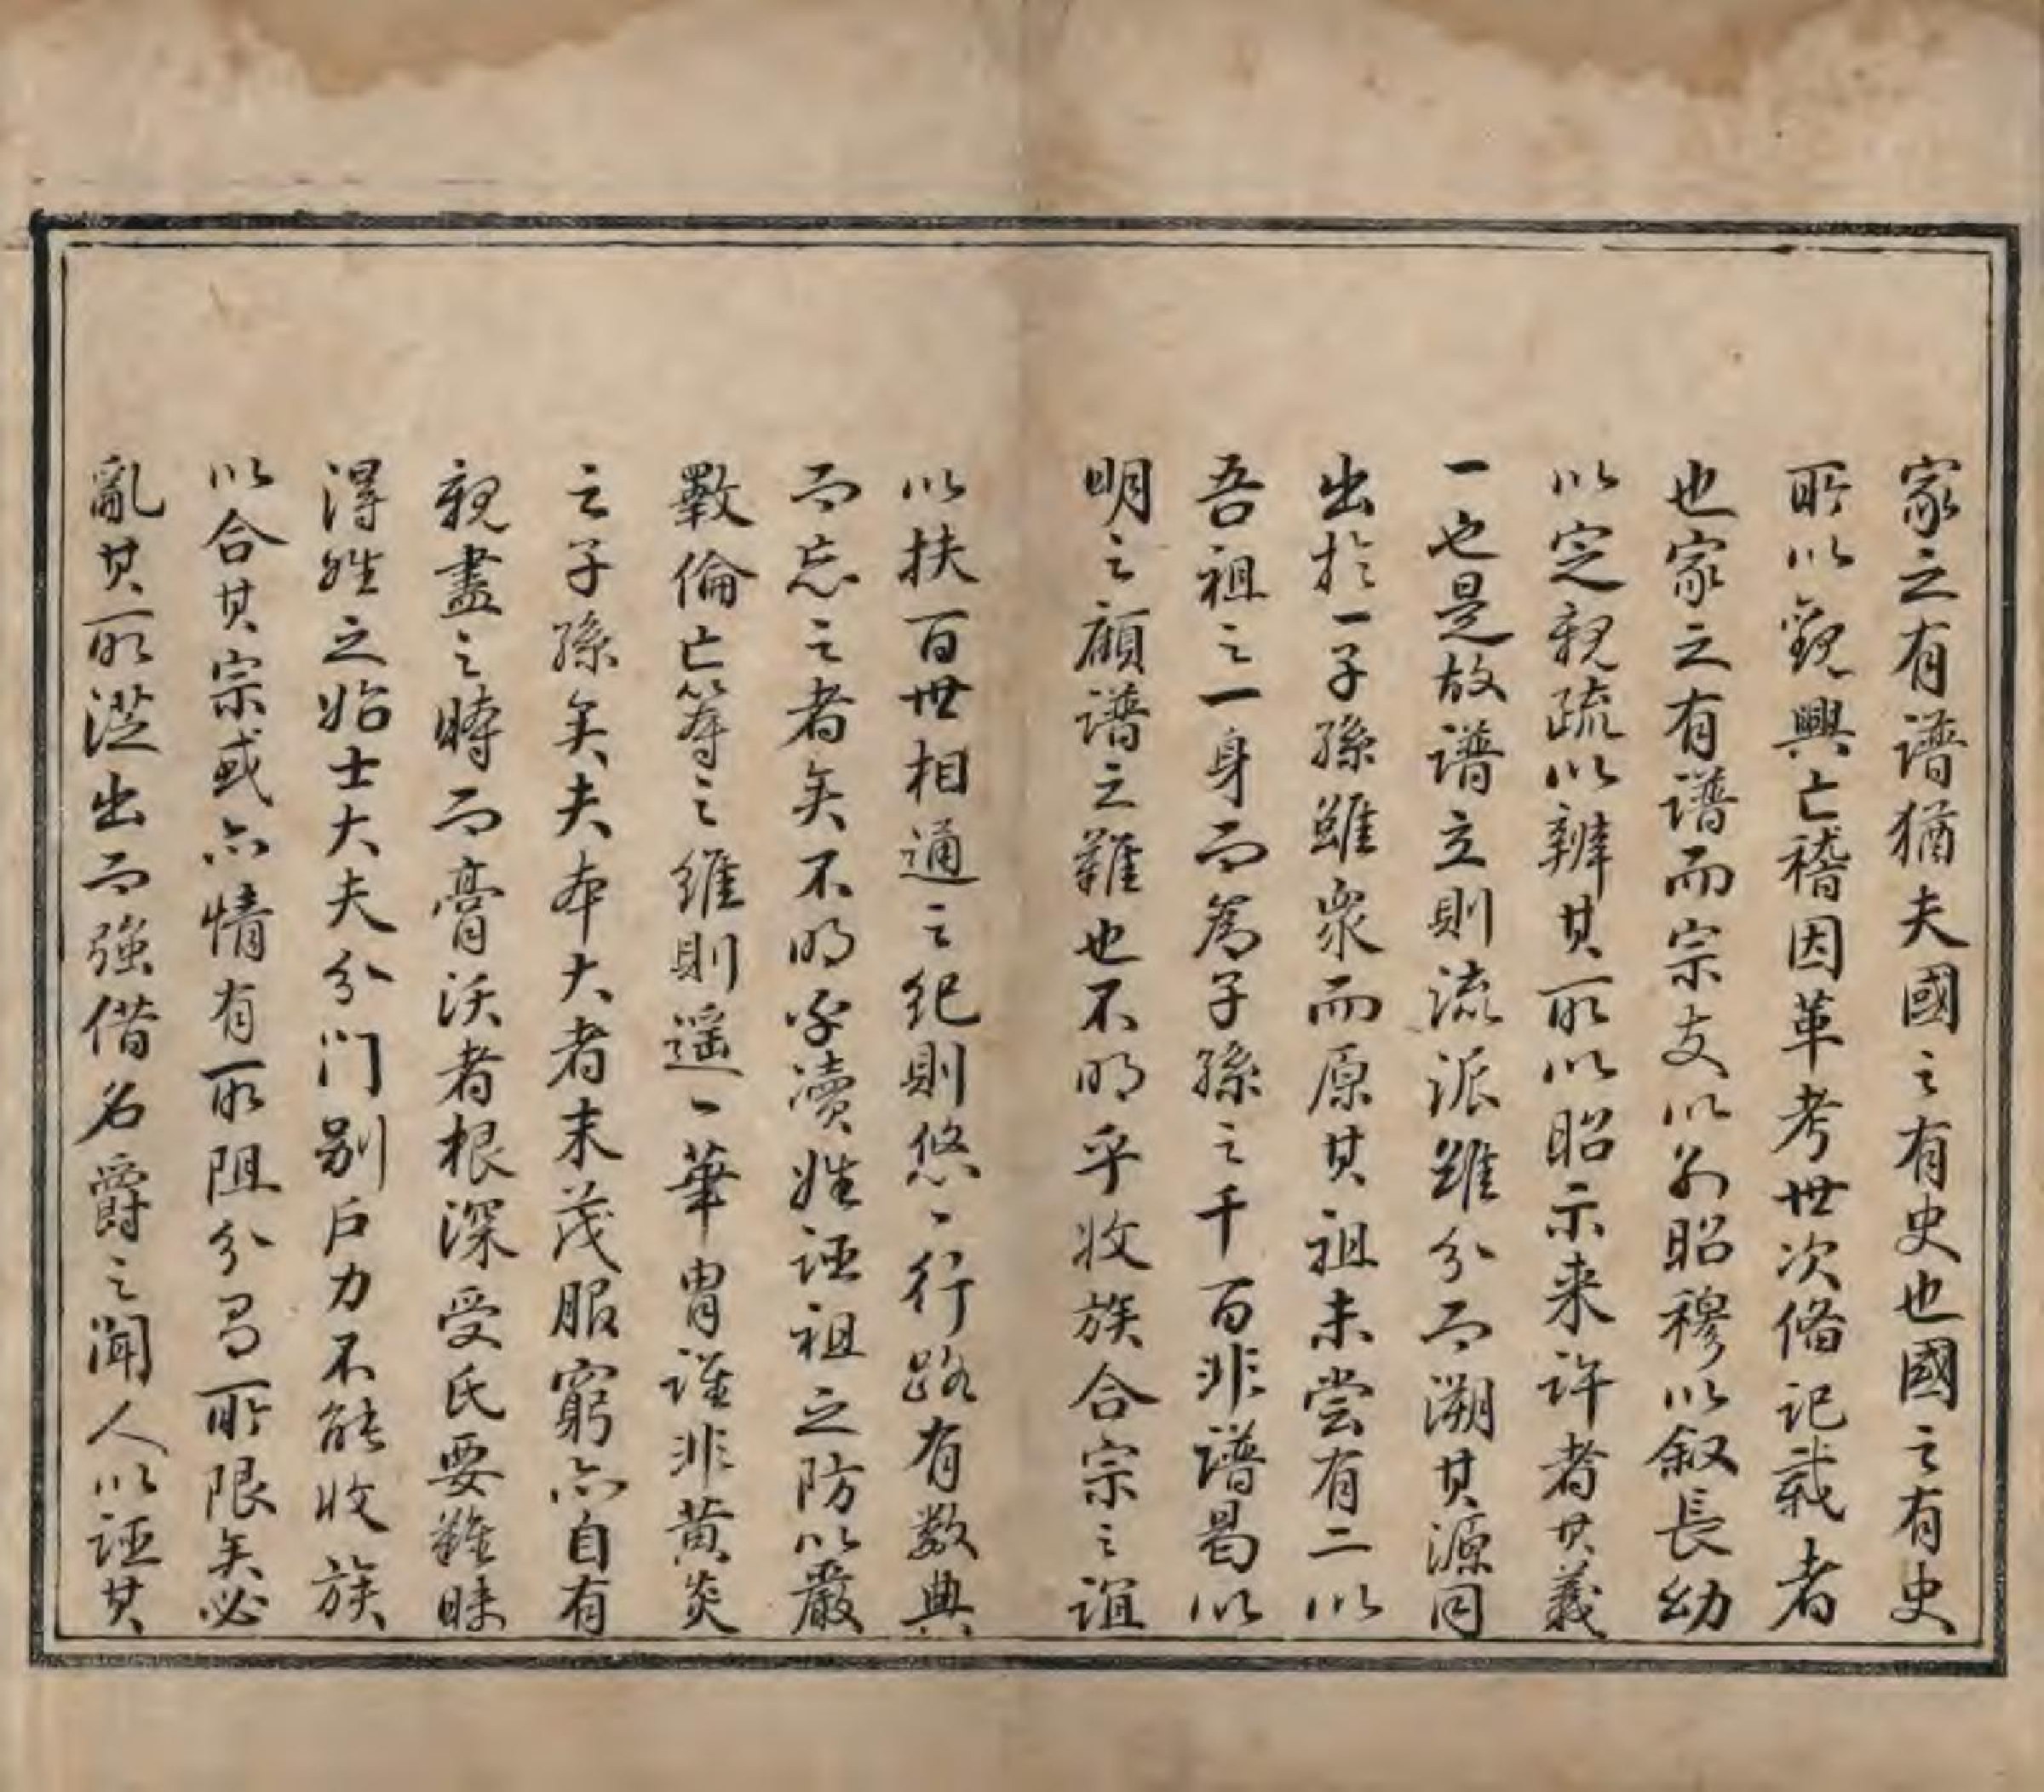 家之有譜猶夫國之有史也國之有史
所以觀興亡稽因革考世次俻記載者
也家之有譜而宗支以別昭穆以叙長幼
以定親疏以辨其所以昭示来許者其義
一也是故譜立則流派雖分而溯其源同
出於一子孫雖衆而原其祖未嘗有二以
吾祖之一身而為子孫之千百非譜曷以
明之顧譜之難也不明乎收族合宗之誼
以扶百世相通之紀則悠丶行路有数典
而忘之者矣不明乎瀆姓誣祖之防以嚴
斁倫亡等之維則遥丶華胄誰非黄炎
之子孫矣夫本大者末茂服窮亦自有
親盡之時而膏沃者根深受氏要難昧
得姓之始士大夫分门别戶力不能收族
以合其宗或亦情有所阻分有所限矣必
亂其所從出而強借名爵之聞人以誣其